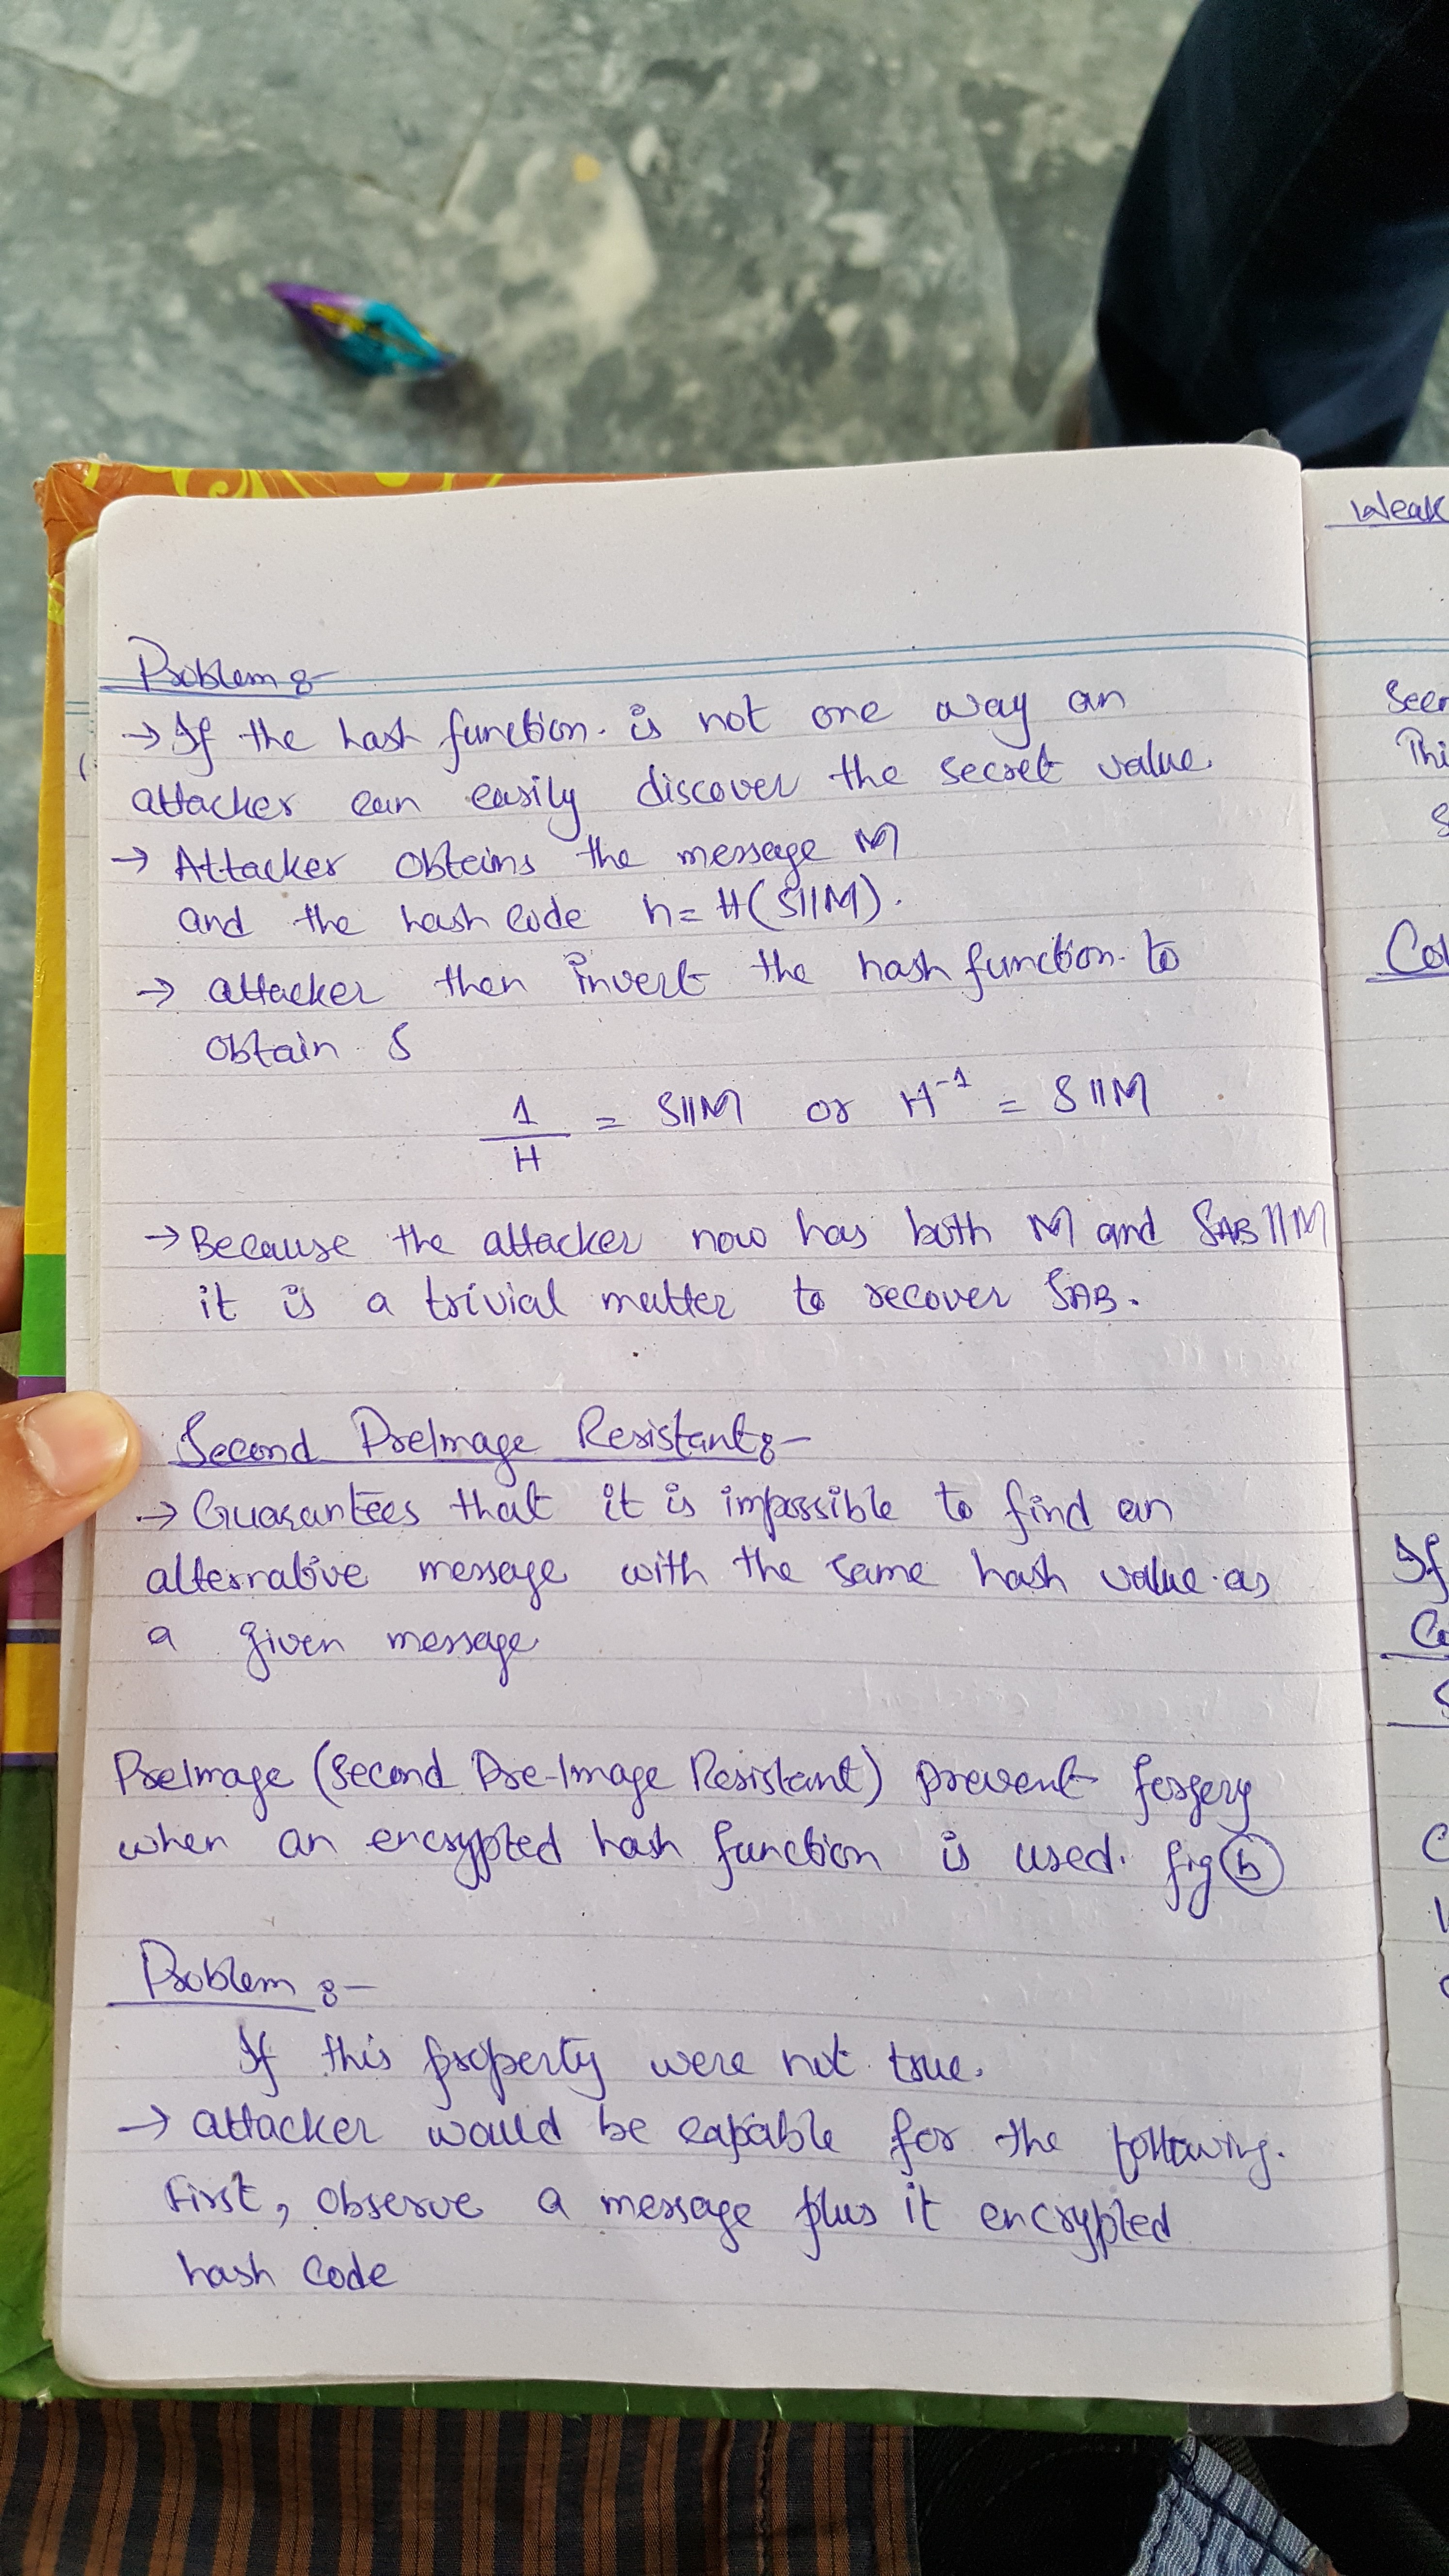 Problem :-
→ If the hash function is not one way an
attacker can easily discover the secret value.
→ Attacker obteins the message M
and the hash code h = H(S||M).
→ attacker then invert the hash function to
obtain S
1/H = S||M or H⁻¹ = S||M
→ Because the attacker now has both M and SAB||M
it is a trivial matter to recover SAB.
Second PreImage Resistant :-
→ Guarantees that it is impossible to find an
alternative message with the same hash value as
a given message
PreImage (Second Pre-Image Resistant) prevent forgery
when an encrypted hash function is used. fig (b)
Problem :-
If this property were not true.
→ attacker would be capable for the following.
First, observe a message plus it encrypted
hash code
Weak
Thi
Col
If